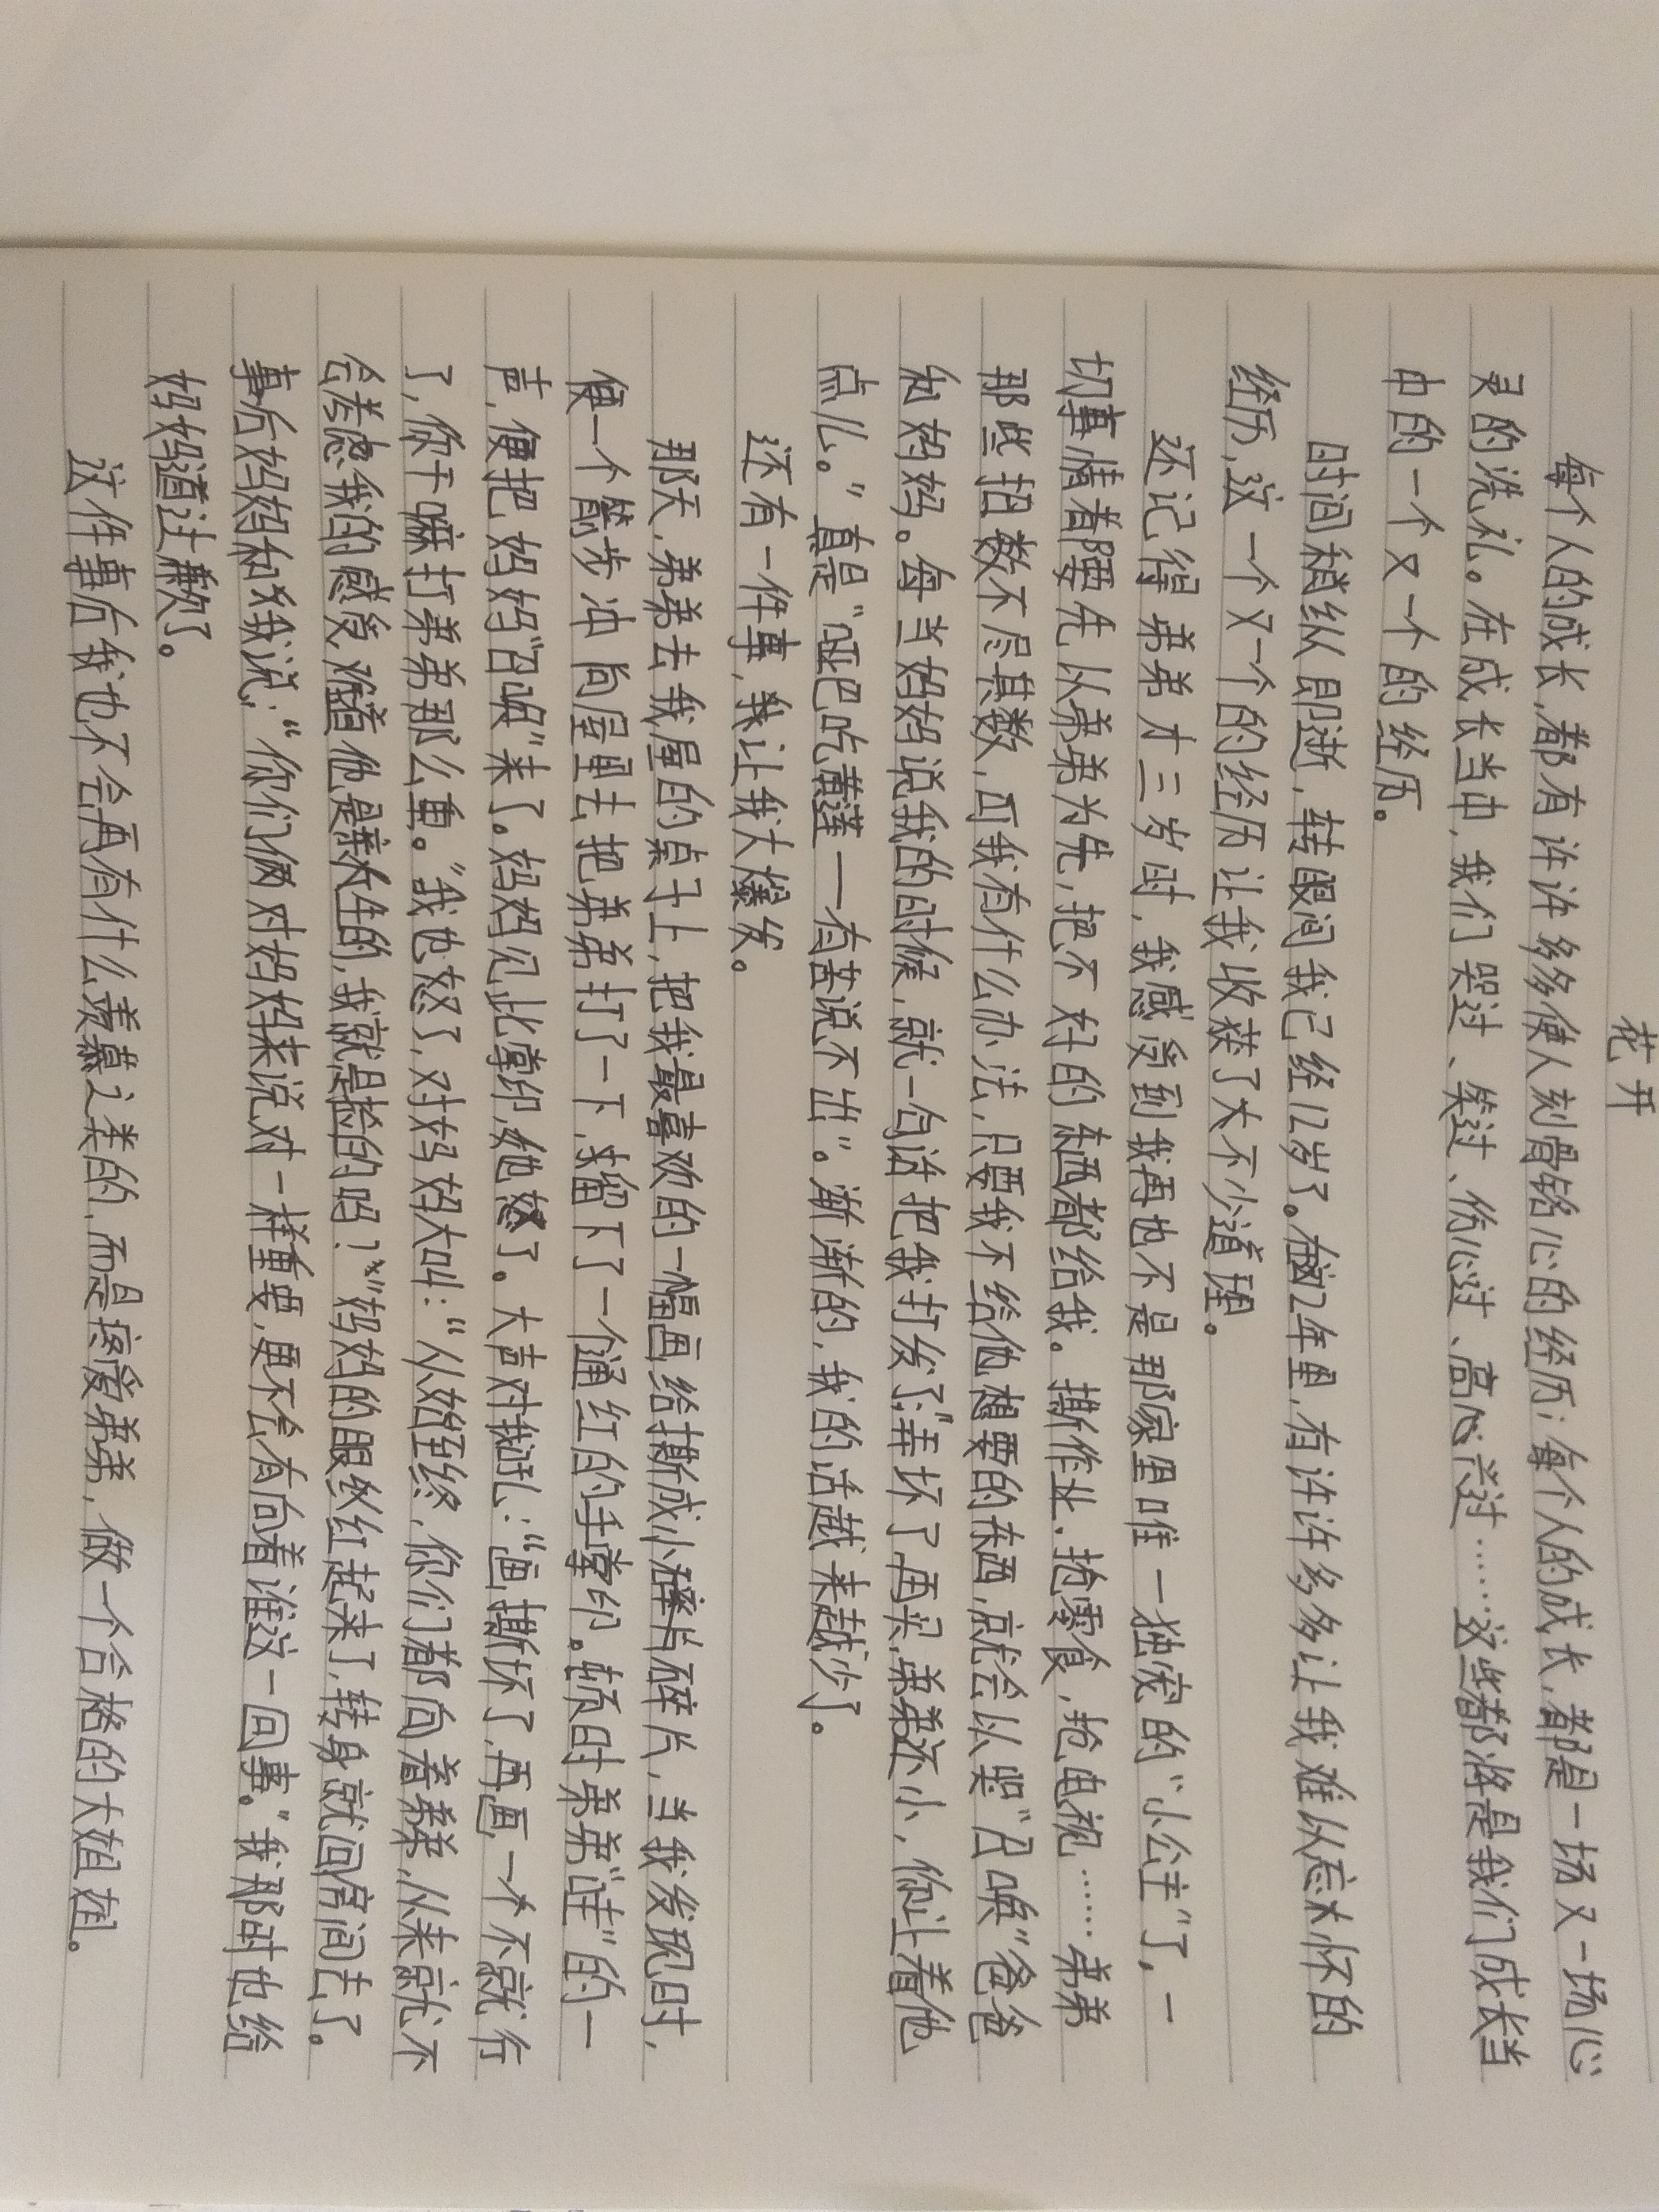 花开
每个人的成长,都有许许多多使人刻骨铭心的经历;每个人的成长,都是一场又一场心
灵的洗礼。在成长当中,我们哭过、笑过、伤心过、高心兴过……这些都将是我们成长当
中的一个又一个的经历。
时间稍纵即逝,转眼间我已经12岁了。在这12年里,有许许多多让我难以忘怀的
经历,这一个又一个的经历让我收获了大不少道理。
还记得弟弟才三岁时,我感受到我再也不是那家里唯一独宠的“小公主”了,一
切事情着都要先以弟弟为先,把不好的东西都给我。撕作业,抢零食,抢电视……弟弟
那些招数不尽其数,可我有什么办法,只要我不给他想要的东西,就会以哭“召唤”爸爸
和妈妈。每当妈妈说我的时候,就一句话把我打发了:“弄坏了再买,弟弟还小,你让着他
点儿。”真是“哑巴吃黄莲——有苦说不出”。渐渐的,我的话越来越少了。
还有一件事,我让我大爆发。
那天,弟弟去我屋的桌子上,把我最喜欢的一幅画给撕成小碎片,当我发现时,
便一个箭步冲向屋里去把弟弟打了一下,留下了一个通红的手掌印。顿时弟弟“哇”的一
声,便把妈妈“召唤”来了。妈妈见此掌印,她怒了。大声对我吼:“画撕坏了,再画一个不就行
了,你干嘛打弟弟那么重。”我也怒了,对妈妈大叫:“从始至终,你们都向着弟弟,从来就不
会考虑我的感受,难道他是亲生的,我就是捡的吗?”妈妈的眼丝红起来了,转身就回房间去了。
事后妈妈和我说:“你们俩对妈妈来说对一样重要,更不会有向着谁这一回事。”我那时也给
妈妈道过歉了。
这件事后我也不会再有什么羡慕之类的,而是疼爱弟弟,做一个合格的大姐姐。